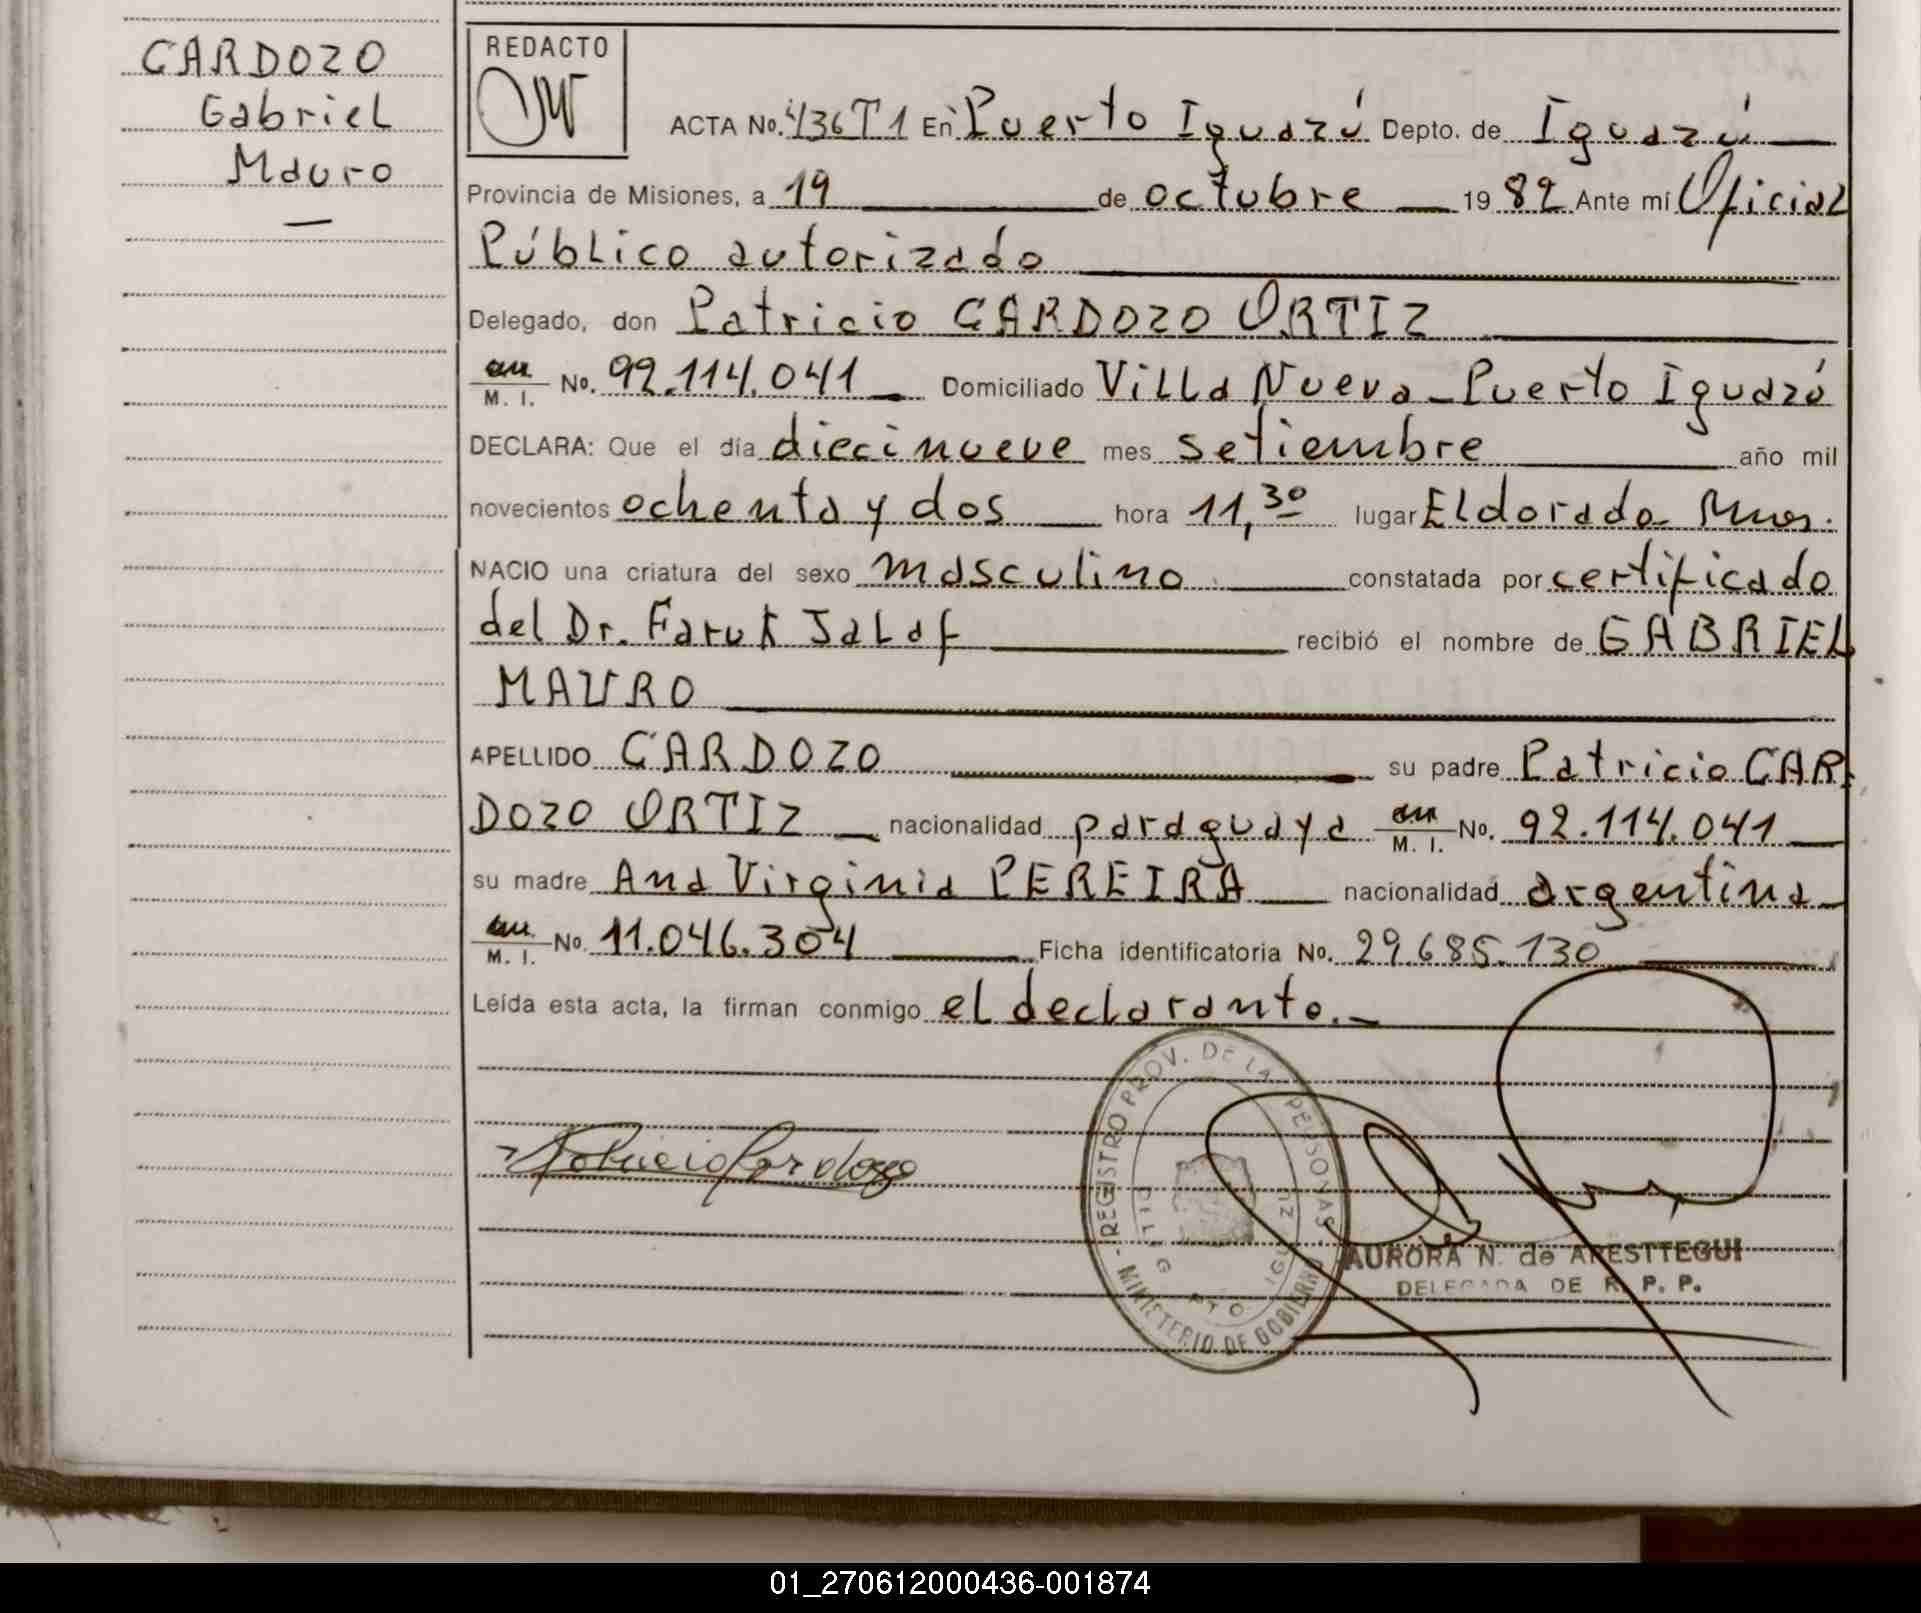 CARDOZO
Gabriel
Mauro
REDACTO
ACTA No. 436T1 En Puerto Iguazú Depto. de Iguazú
Provincia de Misiones, a 19 de octubre 1982 Ante mí Oficial
Público autorizado
Delegado, don Patricio CARDOZO ORTIZ
M. I. No. 92.114.041 Domiciliado Villa Nueva - Puerto Iguazú
DECLARA: Que el día diecinueve mes setiembre año mil
novecientos ochenta y dos hora 11,30 lugar Eldorado Mnes.
NACIO una criatura del sexo masculino constatada por certificado
del Dr. Faruk Jalaf recibió el nombre de GABRIEL
MAURO
APELLIDO CARDOZO su padre Patricio CAR
DOZO ORTIZ nacionalidad paraguaya M. I. No. 92.114.041
su madre Ana Virginia PEREIRA nacionalidad argentina
M. I. No. 11.046.304 Ficha identificatoria No. 29.685.130
Leída esta acta, la firman conmigo el declarante.-
Patricio Cardozo
REGISTRO PROV. DE LA PERSONAS
MINISTERIO DE GOBIERNO
AURORA N. de ARESTTEGUI
DELEGADA DE R. P. P.
01_270612000436-001874